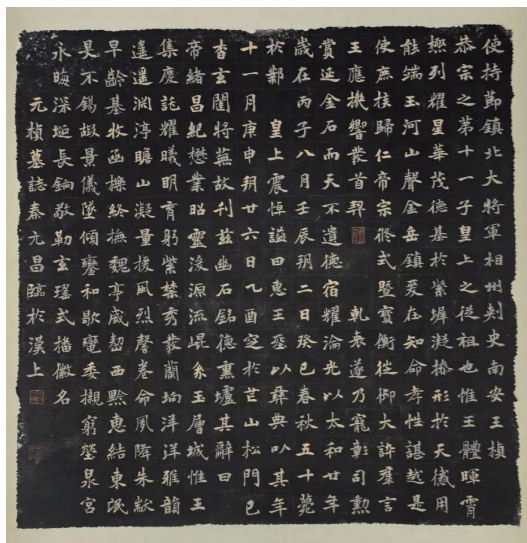 使持節鎮北大將軍相州刺史南安王楨
恭宗之第十一子皇上之從祖也惟王體暉霄
極列耀星華茂德基於紫墀凝操形於天儀用
能端玉河山聲金岳鎮爰在知命孝性諶越是
使庶族歸仁帝宗攸式暨寶衡徙御大訊群言
王應機響發首契 乾衷遂乃寵彰司勳
賞延金石而天不遺德宿耀淪光以太和廿年
歲在丙子八月壬辰朔二日癸巳春秋五十薨
於鄴 皇上震悼諡曰惠王葬以彝典以其年
十一月庚申朔廿六日乙酉窆於芒山松門已
杳玄闥將蕪故刊茲幽石銘德熏壚其辭曰
帝緒昌紀懋業昭靈浚源流崐系玉層城惟王
集慶託耀曦明育躬紫禁秀發蘭坰洋洋雅韻
遙遙淵渟瞻山凝量援風烈馨卷命夙降朱黻
早齡基牧函櫟終撫魏亭威懾西黔惠結東氓
旻不錫嘏景儀墜傾鑾和歇委櫬窮塋泉宮
永晦深埏長銄敬勒玄瑤式播徽名
元楨墓誌秦亢昌臨於漢上